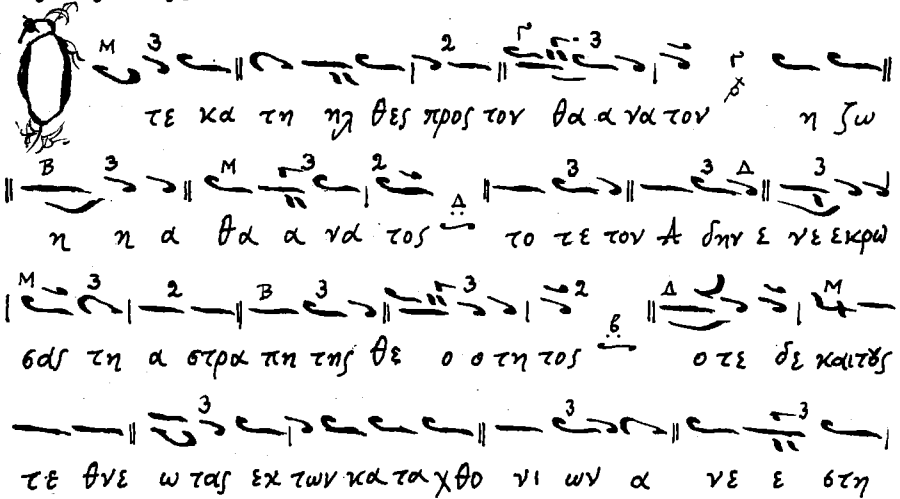 Ο τε κα τη ηλ θες προς τον θα α να τον η ζω
η η α θα α να τος το τε τον Α δην ε νε εκρω
σας τη α στρα πη της θε ο ο τη τος ο τε δε και τȣς
τε θνε ω τας εκ των κα τα χθο νι ων α νε ε στη